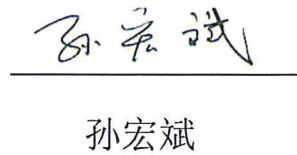 孙宏斌
孙宏斌